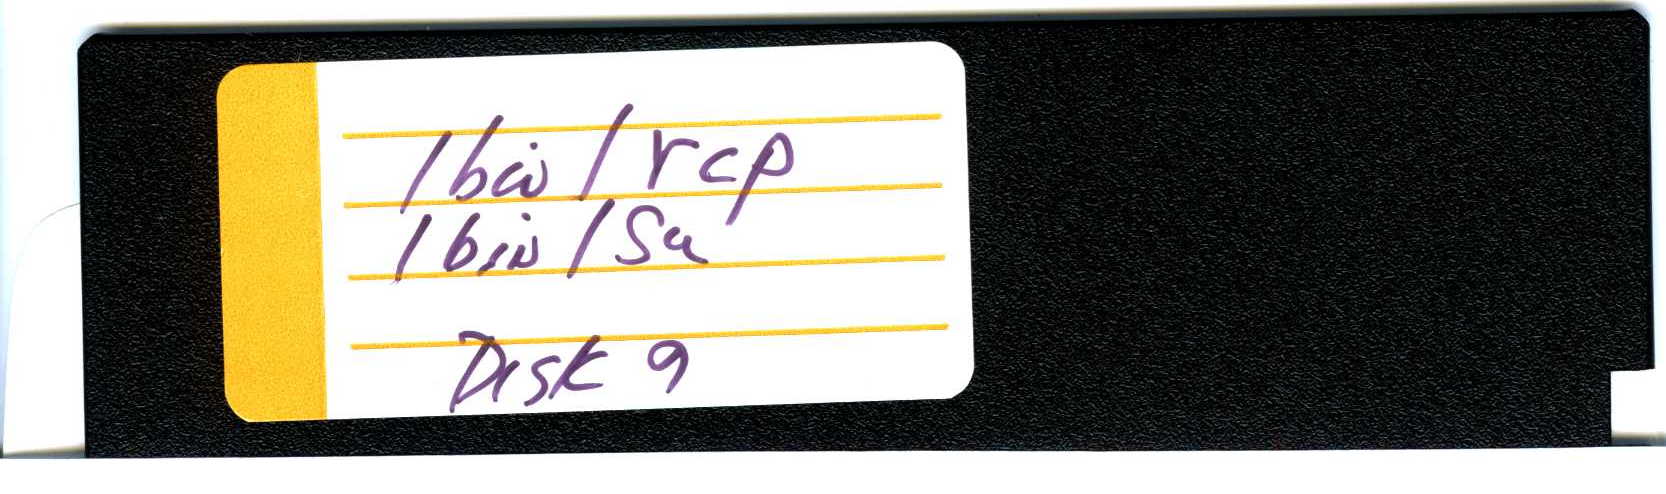 /bin/rcp
/bin/su
Disk 9